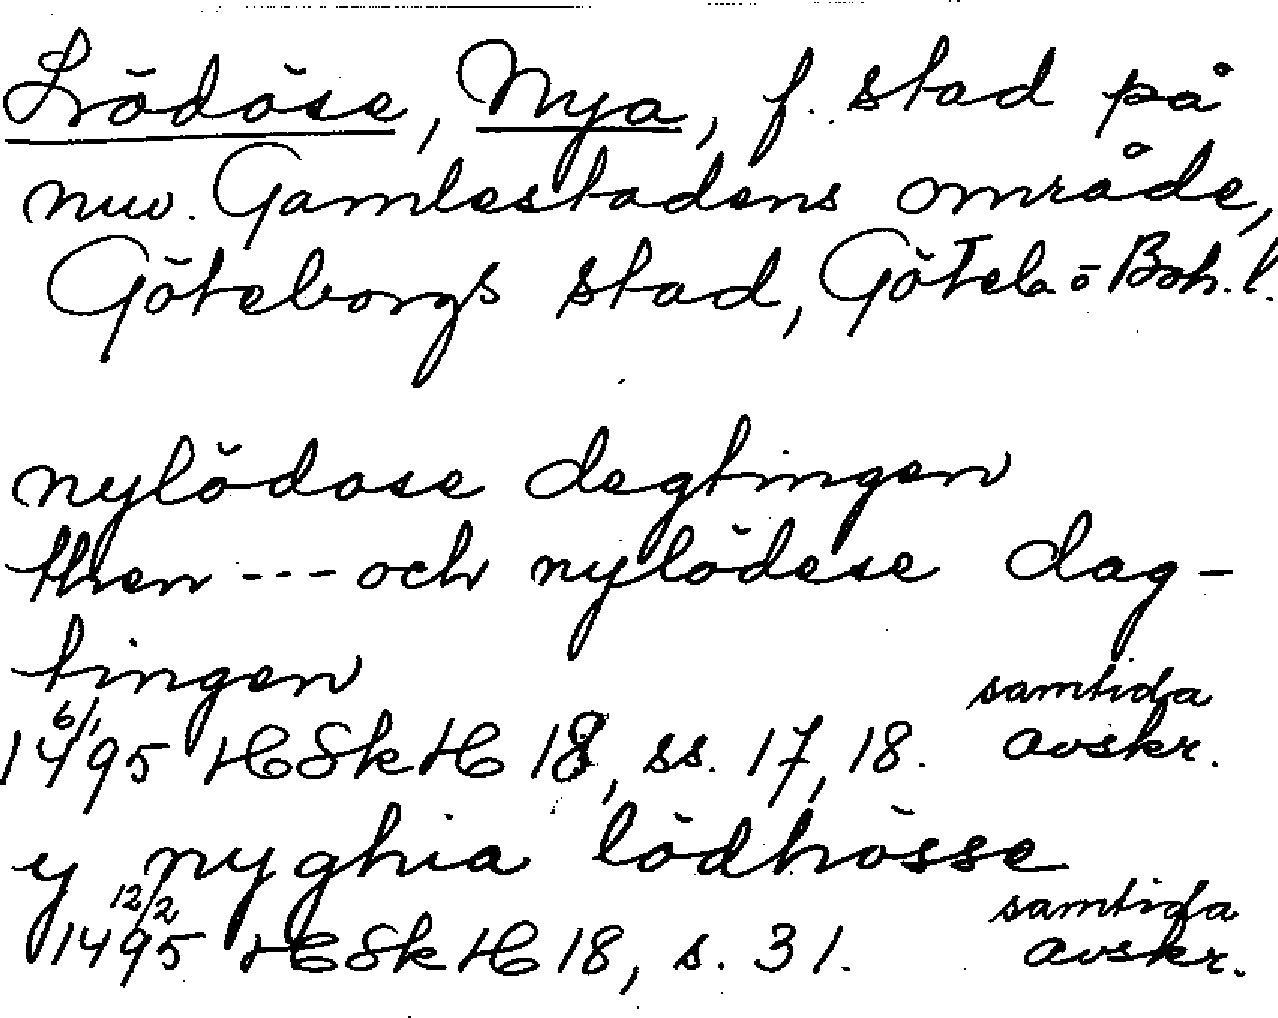 Lödöse, Nya, f. stad på
nuv. Gamlestadens område,
Göteborgs stad, Göteb. o Boh. l.
nylödose degtingen
then --- och nylödese dag-
tingen
6/1 1495 HSkH 18, ss. 17, 18. samtida avskr.
y nyghia lödhösse
12/2 1495 HSkH 18, s. 31. samtida avskr.